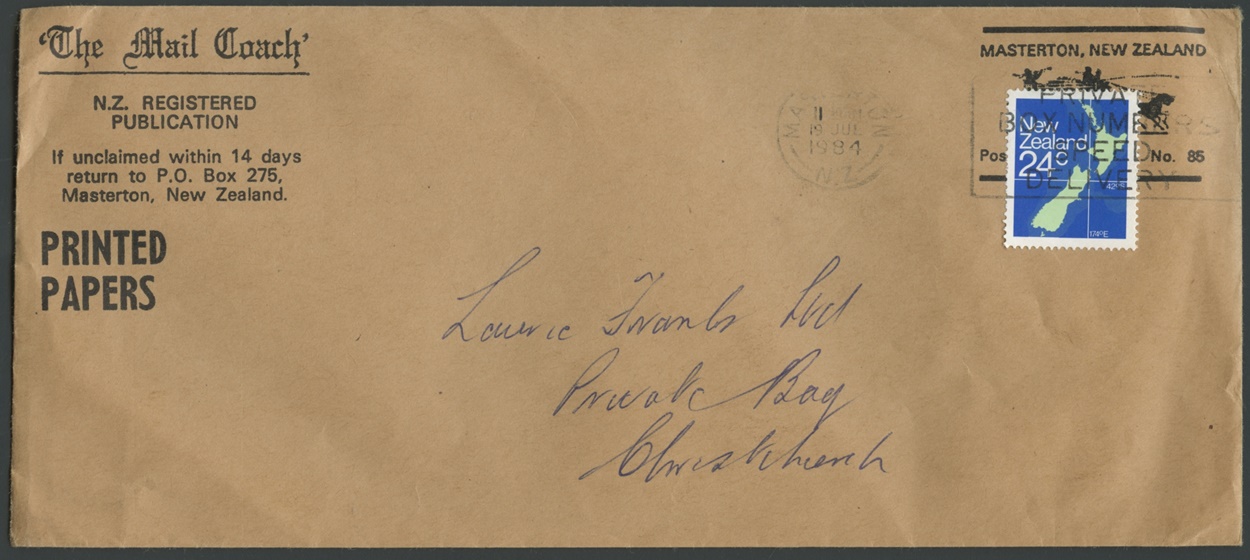 'The Mail Coach'
N.Z. REGISTERED
PUBLICATION
If unclaimed within 14 days
return to P.O. Box 275,
Masterton, New Zealand.
PRINTED
PAPERS
MASTERTON, NEW ZEALAND
No. 85
19 JUL
1984
N.Z.
BOX NUMBERS
SPEED
DELIVERY
New
Zealand
24c
42°S
174°E
Laurie Franks Ltd
Private Bag
Christchurch